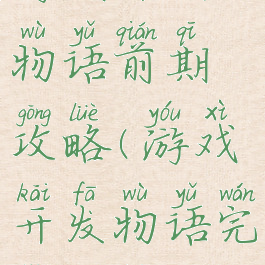 wù yǔ qián qī
物语前期
gōng lüè yóu xì
攻略(游戏
kāi fā wù yǔ wán
开发物语完